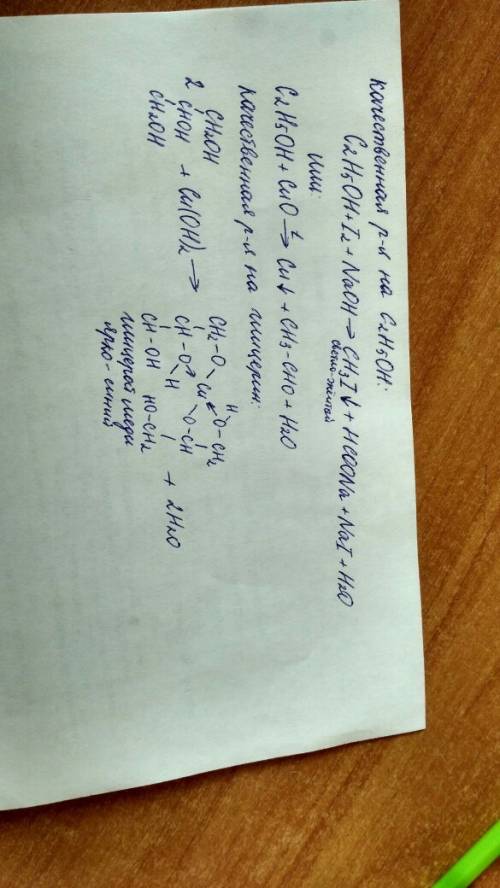 качественная р-я на C2H5OH:
C2H5OH + I2 + NaOH → CH3I↓ + HCOONa + NaI + H2O
светло-желтый
или:
C2H5OH + CuO →t Cu↓ + CH3-CHO + H2O
качественная р-я на глицерин:
CH2OH CH2-O H O-CH2
2 CHOH + Cu(OH)2 → CH-O Cu O-CH + 2H2O
CH2OH H
CH-OH HO-CH2
глицерат меди
ярко-синий